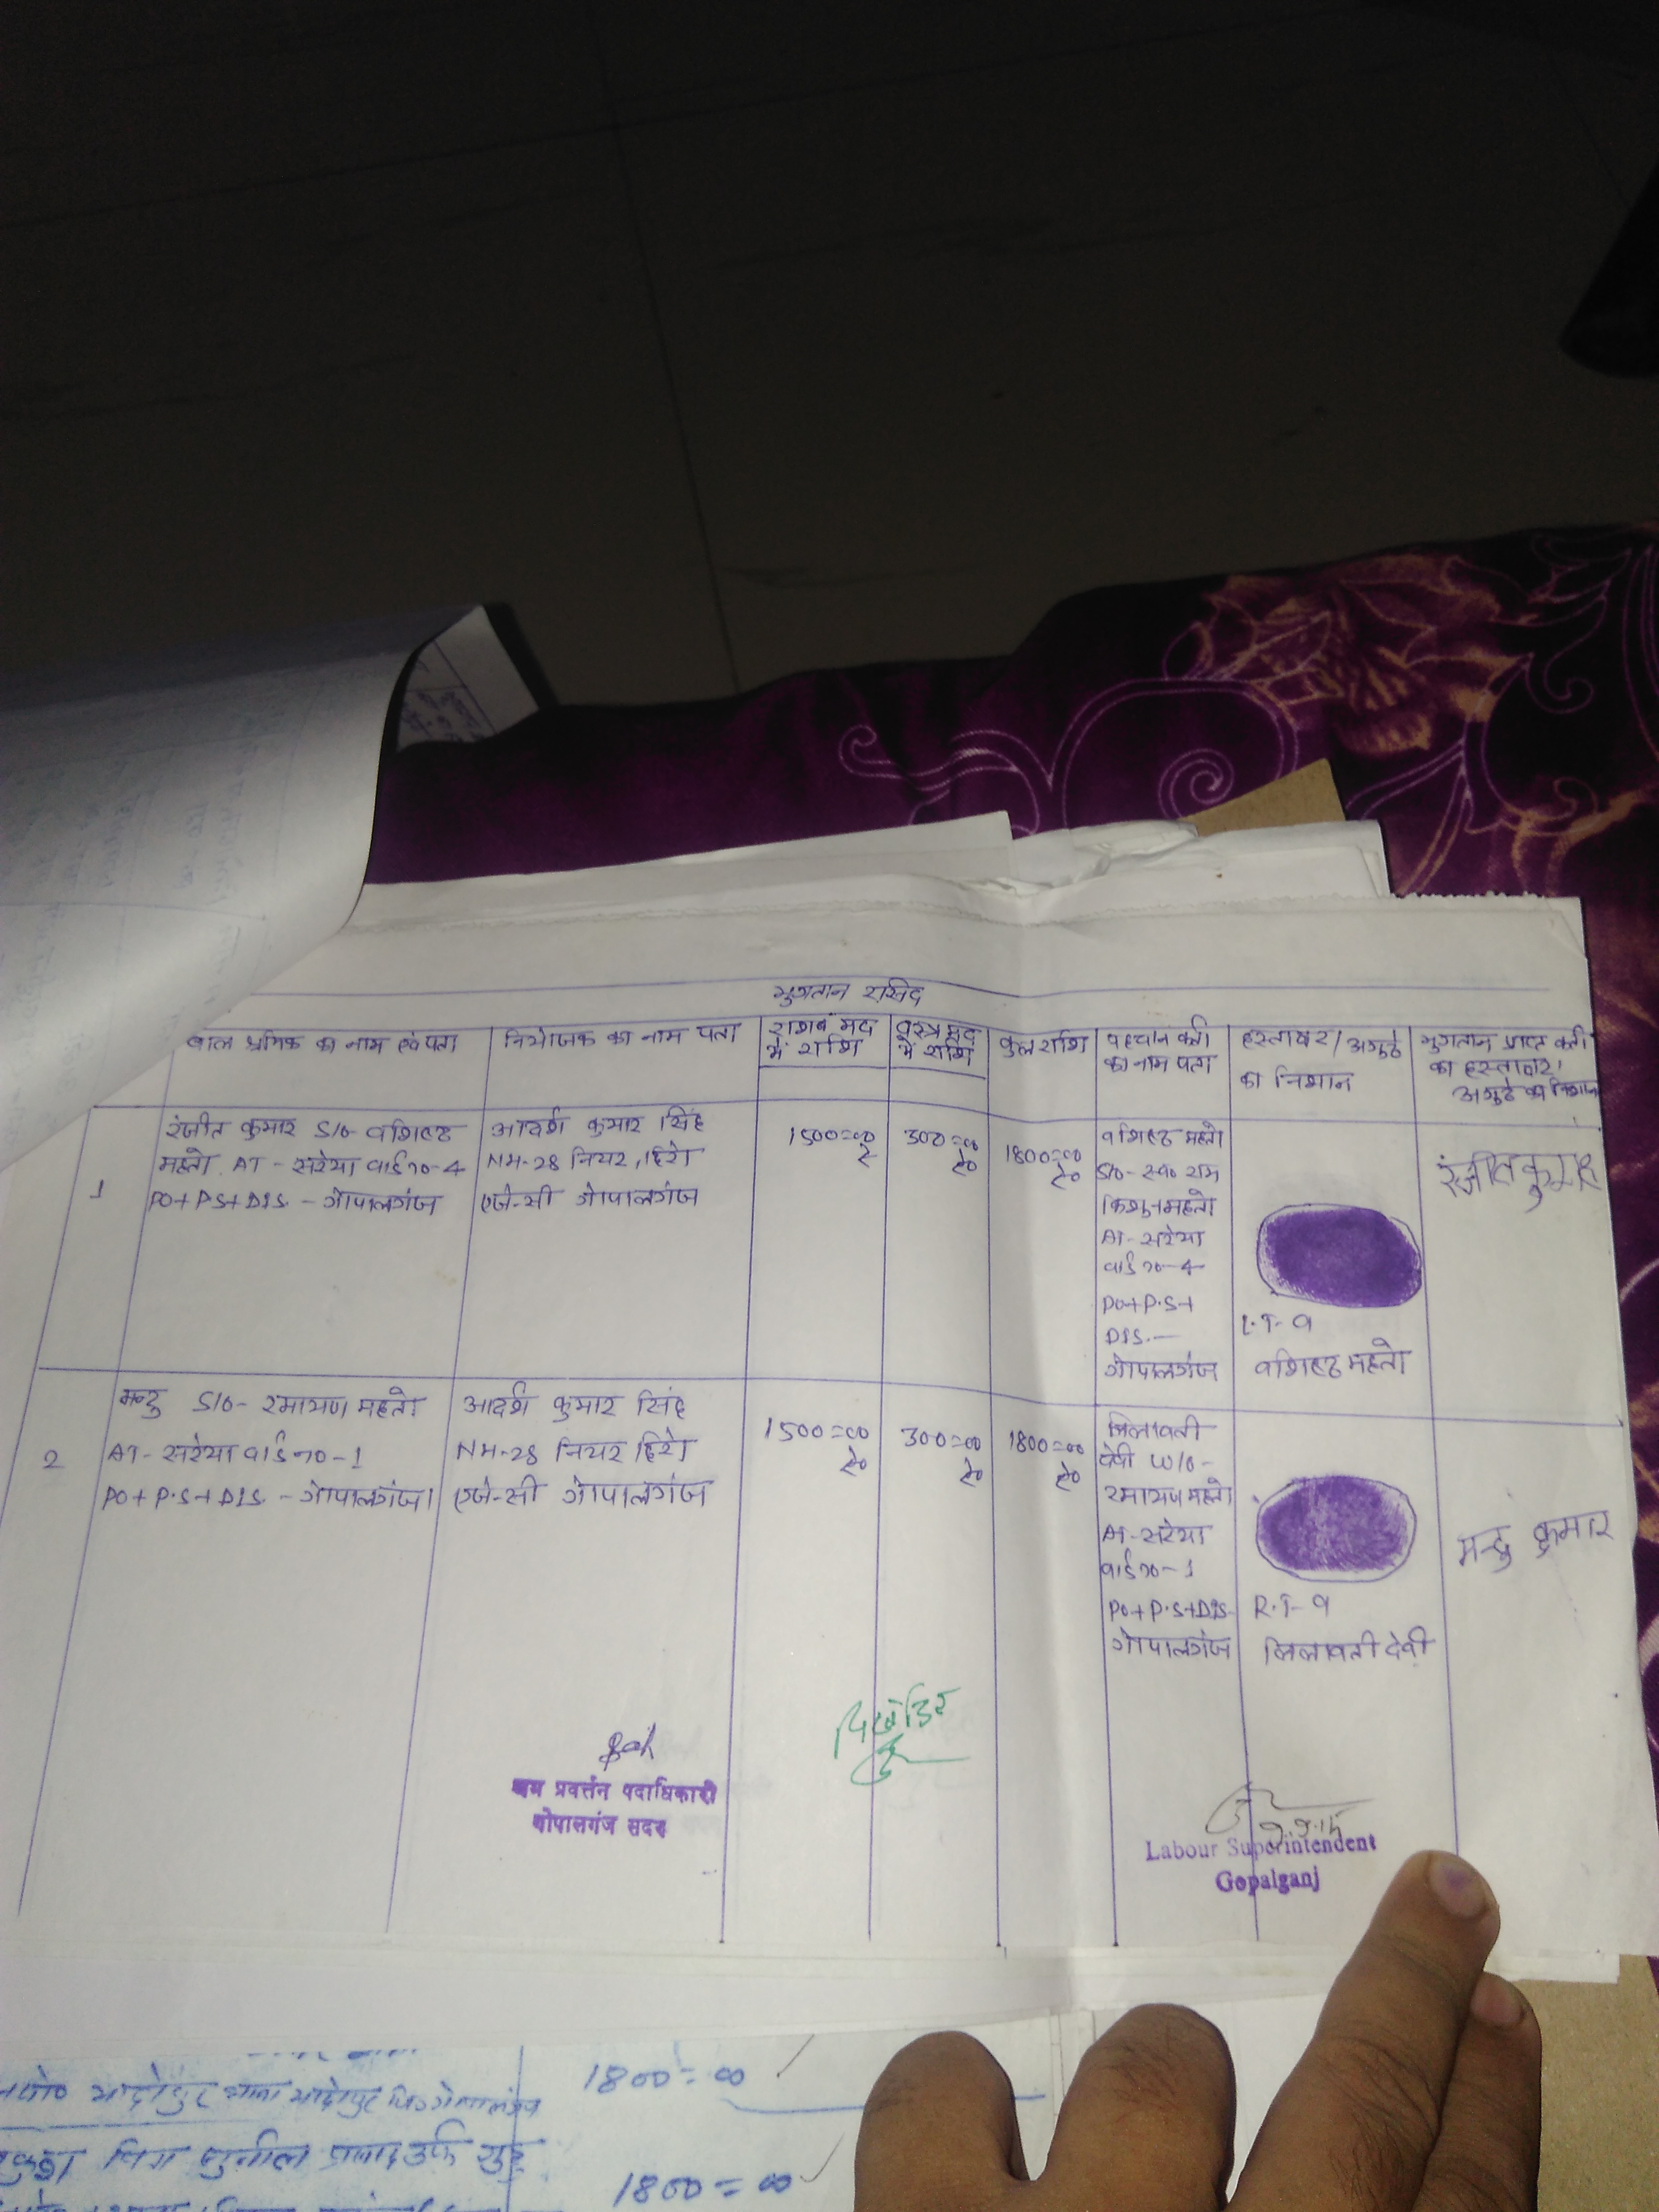 भुगतान रसिद
बाल श्रमिक का नाम एवं पता
नियोजक का नाम पता
राशन मद
में राशि
वस्त्र मद
में राशि
कुल राशि
पहचान कर्ता
का नाम पता
हस्ताक्षर/अगुठे
का निशान
भुगतान प्राप्त कर्ता
का हस्ताक्षर/
अगुठे का निशान
1
रंजीत कुमार S/o- वशिष्ठ
महतो AT- सरेया वार्ड न०-4
PO+PS+DIS. - गोपालगंज
आदर्श कुमार सिंह
NH-28 नियर, हिरो
एजेन्सी गोपालगंज
1500=00
रु
300=00
रु०
1800=00
रु०
वशिष्ठ महतो
S/o- स्व० राम
किशुन महतो
AT- सरेया
वार्ड न०-4
PO+P.S+
DIS.-
गोपालगंज
L.T-9
वशिष्ठ महतो
रंजीत कुमार
2
मन्टु S/o- रमायण महतो
AT- सरेया वार्ड न०-1
PO+P.S+DIS. - गोपालगंज।
आदर्श कुमार सिंह
NH-28 नियर हिरो
एजेन्सी गोपालगंज
1500=00
रु०
300=00
रु०
1800=00
रु०
लिलावती
देवी W/o-
रमायण महतो
AT-सरेया
वार्ड न०-1
PO+P.S+DIS-
गोपालगंज
R.T-9
लिलावती देवी
मन्टु कुमार
श्रम प्रवर्त्तन पदाधिकारी
गोपालगंज सदर
Labour Superintendent
Gopalganj
1800=00
1800=00